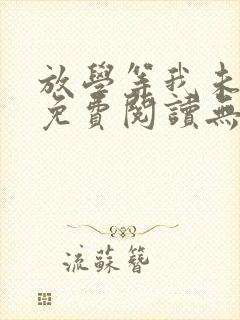 放學等我未
免費閱讀無
流蘇簪